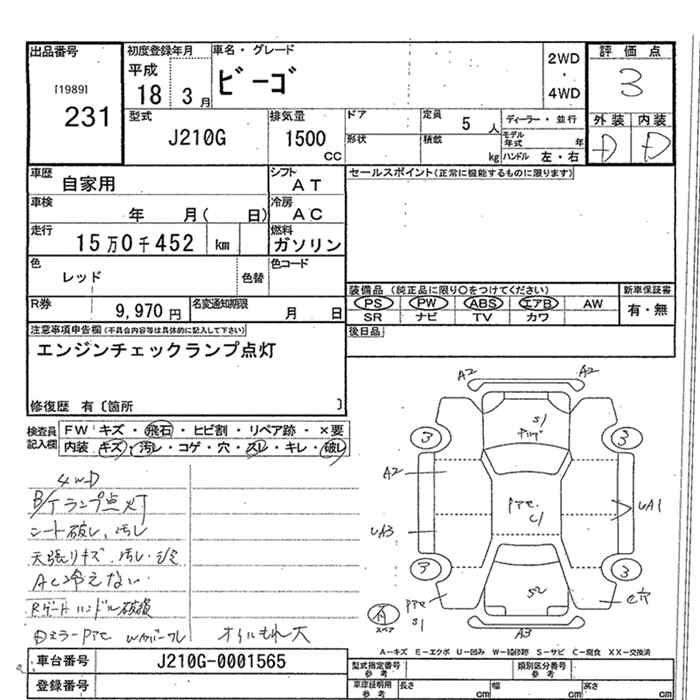 出品番号
[1989]
231
初度登録年月
平成
18 3 月
車名・グレード
ビーゴ
2WD
・
4WD
評価点
3
外装 内装
D D
型式
J210G
排気量
1500
CC
ドア
形状
定員 5 人
積載 kg
ディーラー・並行
モデル年式 年
ハンドル 左・右
車歴
自家用
シフト
AT
車検
年 月( 日)
冷房
AC
走行
15万0千452 km
燃料
ガソリン
色
レッド
色替
色コード
R券
9,970 円
名変通知期限
月 日
セールスポイント(正常に機能するものに限ります)
装備品 (純正品に限り〇をつけてください)
PS PW ABS エアB AW
SR ナビ TV カワ
新車保証書
有・無
後日品
注意事項申告欄(不具合内容等は具体的に記入して下さい)
エンジンチェックランプ点灯
修復歴 有〔箇所 〕
検査員記入欄
FW キズ・飛石・ヒビ割・リペア跡・×要
内装 キズ・汚レ・コゲ・穴・スレ・キレ・破レ
4WD
B/Tランプ点灯
シート破レ、汚レ
天張リキズ、汚レ・シミ
AC冷えない
Rゲートハンドル破損
オイルもれ大
A2 A2
S1
3 3
A2
UA1
UA3
C1
3 3
S2
S1
A3
スペア
A-キズ E-エクボ U-凹み W-補修跡 S-サビ C-腐食 XX-交換済
車台番号
J210G-0001565
登録番号
型式指定番号
参考
類別区分番号
参考
車庫証明用
参考
長さ cm
幅 cm
高さ cm